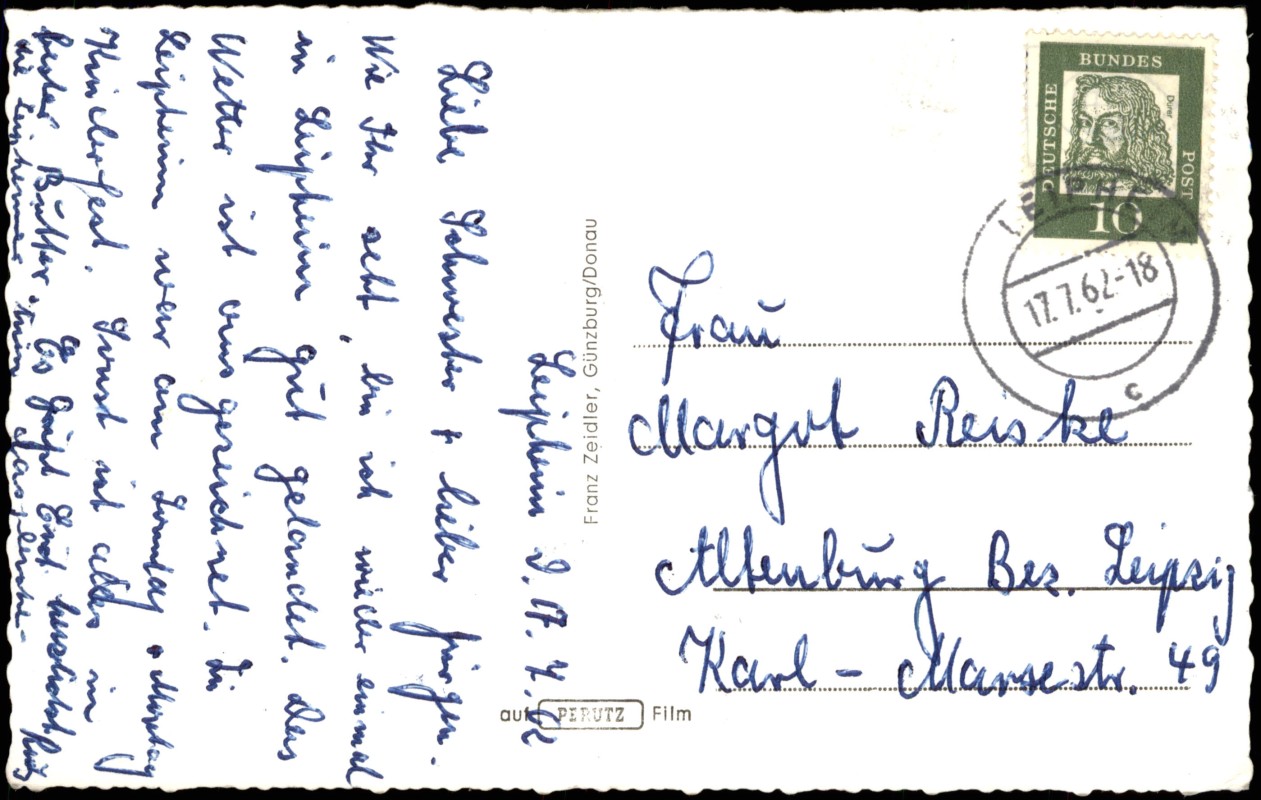 Leipheim d. 17. 7. 62
Liebe Schwester + lieber Jürgen.
Wie Ihr seht, bin ich wieder einmal
in Leipheim gut gelandet. Das
Wetter ist ausgezeichnet. In
Leipheim war am Sonntag + Montag
Kinderfest. Sonst ist alles in
bester Butter. Es grüßt Euch herzlichst
die Leipheimer
Franz Zeidler, Günzburg/Donau
auf PERUTZ Film
DEUTSCHE BUNDESPOST
Dürer
10
LEIPHEIM
17.7.62-18
c
Frau
Margot Reiske
Altenburg Bez. Leipzig
Karl-Marxstr. 49